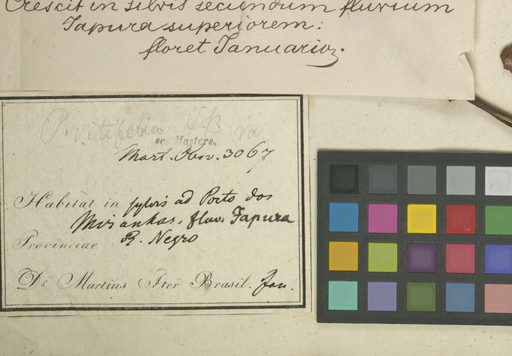 Crescit in silvis secundum fluvium
Japura superiorem:
floret Januario.
P. vitifolia HB
sc. Masters.
Mart. Obs. 3067
Habitat in sylvis ad Porto dos
Miranhas, fluv. Japura
Provinciae R. Negro
Dr. Martius Iter Brasil. Jan.